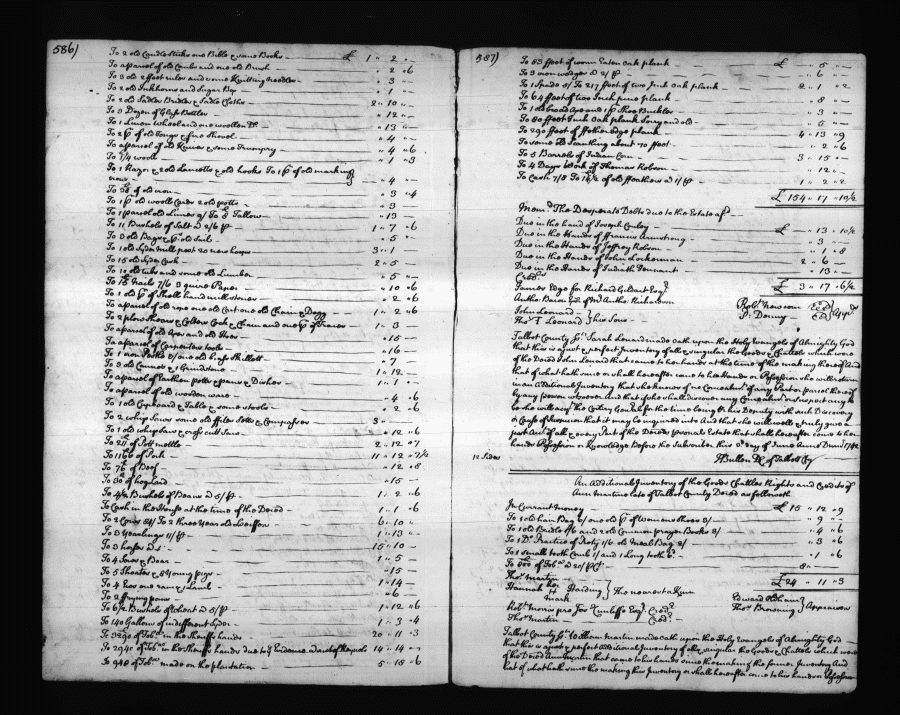 586)
To 2 old Candlesticks one Bible & some Books — £ 1 " 2 " —
To a parcel of old Combs and one old Brush — " 2 " 6
To 3 old 2 ffoot rules and some Knitting needles — " 3 " —
To 2 old Inkhorns and Sugar Box — " 1 " —
To 2 old Sadles Bridles & Sadle Cloths — 2 " 10 " —
To 3 Dozen of Glass Bottles — " 12 " —
To 1 Linen Wheel and one woollen Do — " 13 " —
To 2 pr of old Tongs & fire shovel — " 4 " —
To a parcel of old Knives & some Trumpery — " 4 " 6
To 7/4 wool — " 1 " 3
To 1 Razor & 2 old Lancetts & old hooks To 1 pr of old marking
irons — " 4 " —
To 58 lb of old iron — " 3 " 4
To 1 pr old wooll Cards 2 old potts — " 3 " —
To 1 parcel old Lines 9/ To Tallow — " 13 " —
To 11 Bushels of Salt at 2/6 p — 1 " 7 " 6
To 3 old Bags & old Sail — " 5 " —
To 1 old Syder Mill post 20 new hoops — 3 " 1 " —
To 15 old Syder Cask — 2 " 5 " —
To 10 old tubs and some old Lumber — " 5 " —
To Nails 7/6 3 quire Paper — " 10 " 6
To 1 old pr of Small hand millstones — " 2 " 6
To a parcel of old rope one old Cart one old Chain & Dogg — 1 " 2 " 6
To 2 plow Shears & Colters Cock & Chain and one pr of Traces — 1 " 3 " —
To a parcel of old Axes and old Hoes — " 15 " —
To a parcel of Carpenters tools — " 16 " —
To 1 iron Pottle 8/ one old brass Skillett — " 7 " —
To 3 old Cannoes & 1 Grindstone — 1 " 12 " —
To a parcel of Earthen potts & pans & Dishes — 1 " 1 " —
To a parcel of old wooden ware — " 4 " 6
To 1 old Cupboard & Table & some stools — " 2 " 6
To 2 whip Saws some old ffiles Setts & Compasses — 3 " —
To 1 old whipsaw & cross cutt Saw — " 12 " 6
To 211 of Pott mettle — 2 " 12 " 7
To 1166 of Pork — 11 " 12 " 7/2
To 76 lb of Beef — " 12 " 8
To 30 lb of hogs lard — " 15 " —
To 4 1/2 Bushels of Beans at 5/ p — 1 " 2 " 6
To Cash in the House at the time of the Deced — 1 " 1 " 6
To 2 Cows 54/ To 2 three Years old heiffers — 6 " 10 " —
To 3 Yearlings 11/ p — 1 " 13 " —
To 3 horses at — 15 " 10 " —
To 4 Sows & Boar — 1 " 5 " —
To 5 Shoates & 8 Young pigs — " 15 " —
To 4 Ewes one ram & 1 Lamb — 1 " 14 " —
To 2 ffrying pans — " 6 " —
To 6 1/2 Bushels of Wheat at 5/ p — 1 " 12 " 6
To 140 Gallons of indifferent Syder — 1 " 3 " 4
To 3290 of Tobo in the Sheriffs hands — 20 " 11 " 3
To 2940 of Tobo in the Sheriffs hands due to — 14 " 14 " —
To 940 of Tobo made on the plantation — 5 " 18 " 6
587)
To 83 ffoot of worm Eaten oak plank — £ " 5 " —
To 3 iron wedges at 2/ p — " 6 " —
To 1 Spade 5/ To 217 ffeet of two Inch oak plank — 2 " 1 " 2
To 64 ffeet of two Inch pine plank — " 8 " —
To 1 old broad Axe and 1 pr Shoe Buckles — " 3 " —
To 80 ffeet Inch Oak plank Sorry and old — " 5 " —
To 290 ffeet of ffether edge plank — 4 " 13 " 9
To some old Scantling about 70 ffoot — " 2 " 6
To 5 Barrels of Indian Corn — 3 " 15 " —
To 4 Days Work of Thomas Robson — " 12 " —
To Cash 7/8 To 14 1/2 of old ffeathers at 1/ p — 1 " 2 " 2
£ 154 " 17 " 10 1/2
Memo The Desperate Debts due to the Estate of —
Due in the hand of Joseph Conley — £ " 13 " 10 1/2
Due in the Hands of ffrancis Armstrong — " 3 " —
Due in the Hands of Jeffrey Robson — " 1 " 8
Due in the hands of John Lockerman — 2 " 6 " —
Due in the Hands of Judiath Tennant — " 13 " —
Credrs £ 3 " 17 " 6 1/2
James Edge for Richard Gildart Esqr
Anthr Bacon for Mr Anthr Richardson
John Leonard } his Sons —
Thos T Leonard
Robt Newcom
P. Denny } Apprs
Talbot County Ss. Sarah Lenard made oath upon the Holy Evangels of Almighty God
that this is a just & perfect Inventory of all & singular the Goods & Chattels which were
of the Deced John Lenard that came to her hands at the time of the making thereof And
that of what hath since or shall hereafter come to her Hands or Possession she will return
in an Additional Inventory that she knows of no Concealment of any Part or parcel thereof
by any person whatsoever And that if she shall discover any Concealment or suspect any to
be she will acqt the Comisary General for the time being Or his Deputy with such Discovery
& Cause of Suspicion that it may be inquired into And that she will well & truly give a
just Acct of all & every Part of the Deceds personal Estate that shall hereafter come to her
hands Possession or Knowledge Before the Subscriber this day of June Anno Domi 1742
12 Sides
JBullen DC of Talbott Cty
An Additional Inventory of the Goods Chattles Rights and Credits of
Ann Martin late of Talbot County Deced as followeth
In Currant money — £ 15 " 12 " 9
To 1 old hair Bag 6/ one old pr of Womens shoes 3/ — " 9 " —
To 1 old Bridle 1/6 and 2 old Common prayer Books 3/ — " 4 " 6
To 1 Do Practice of Piety 1/6 old Meal Bag 2/ — " 3 " 6
To 1 small tooth Comb 1/ and 1 Long tooth Do — " 1 " 6
To 800 of Tobo at 20/ p Ct — 8 " —
£ 24 " 11 " 3
Thos martin
Hannah her Harding } The nearest a Kin
mark
Robt Morris pro Jos Cunliffe Esqr Credr
Thos Martin — Credr
Edward Oldham
Thos Browning } Appraisers
Talbot County Ss. William Martin made oath upon the Holy Evangels of Almighty God —
that this is a just & perfect Additional Inventory of all & singular the Goods & Chattels which were
of the Deced Ann Martin that came to his hands since the making the former Inventory And
that of what hath since the making this Inventory or shall hereafter come to his hands or Possession